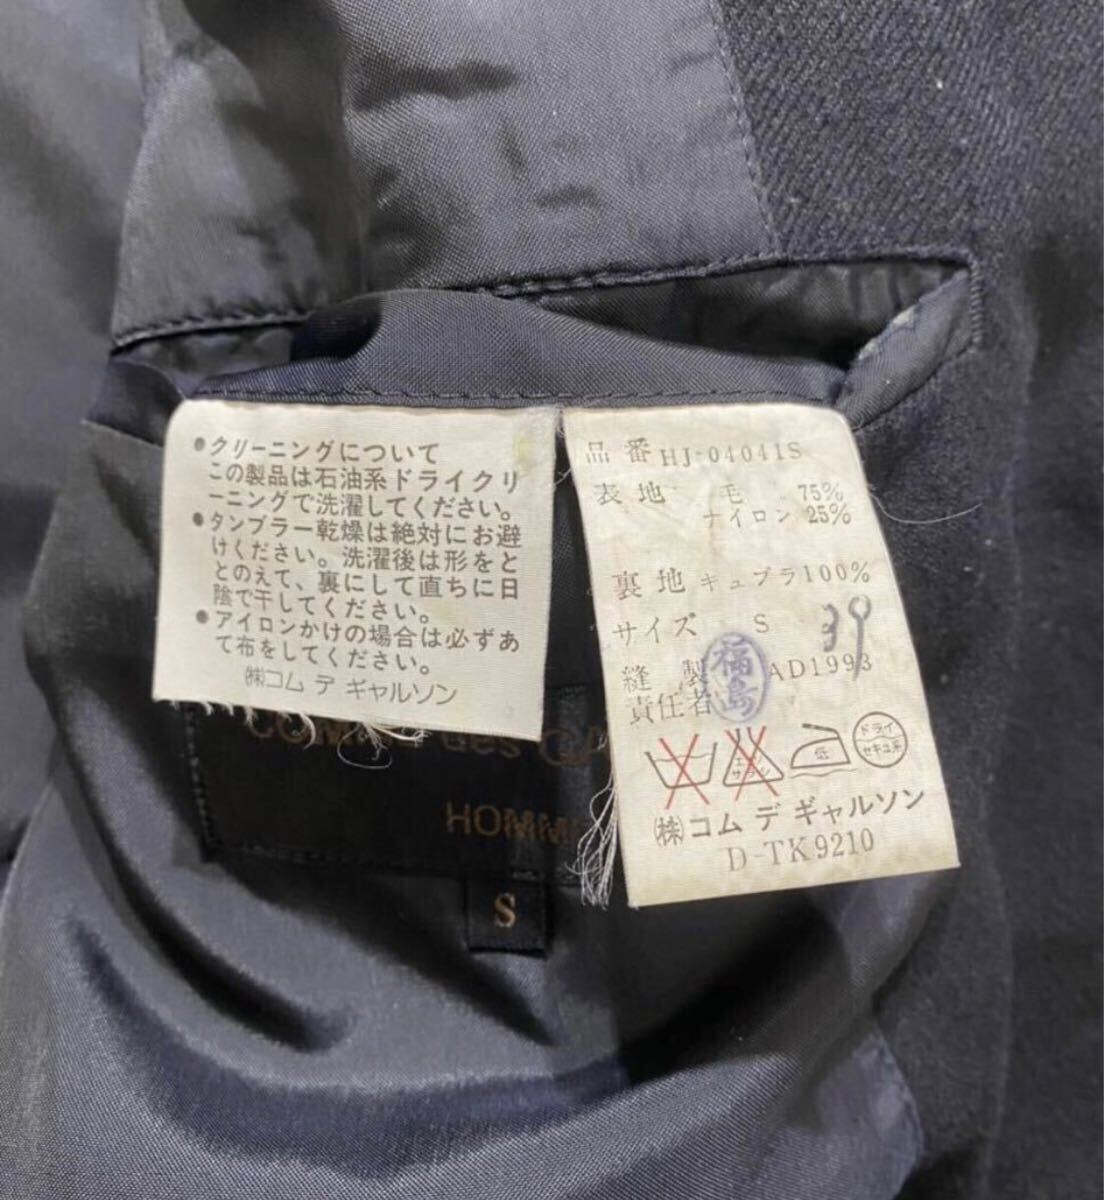 ●クリーニングについて
この製品は石油系ドライクリ
ーニングで洗濯してください。
●タンブラー乾燥は絶対にお避
けください。洗濯後は形をと
とのえて、裏にして直ちに日
陰で干してください。
●アイロンかけの場合は必ずあ
て布をしてください。
㈱コム デ ギャルソン
品番 HJ-04041S
表地 毛 75%
ナイロン 25%
裏地 キュプラ100%
サイズ S 39
縫製 AD1993
責任者 福島
エンソ
サラシ
低
ドライ
セキユ系
㈱コム デ ギャルソン
D-TK9210
des
HOMM
S